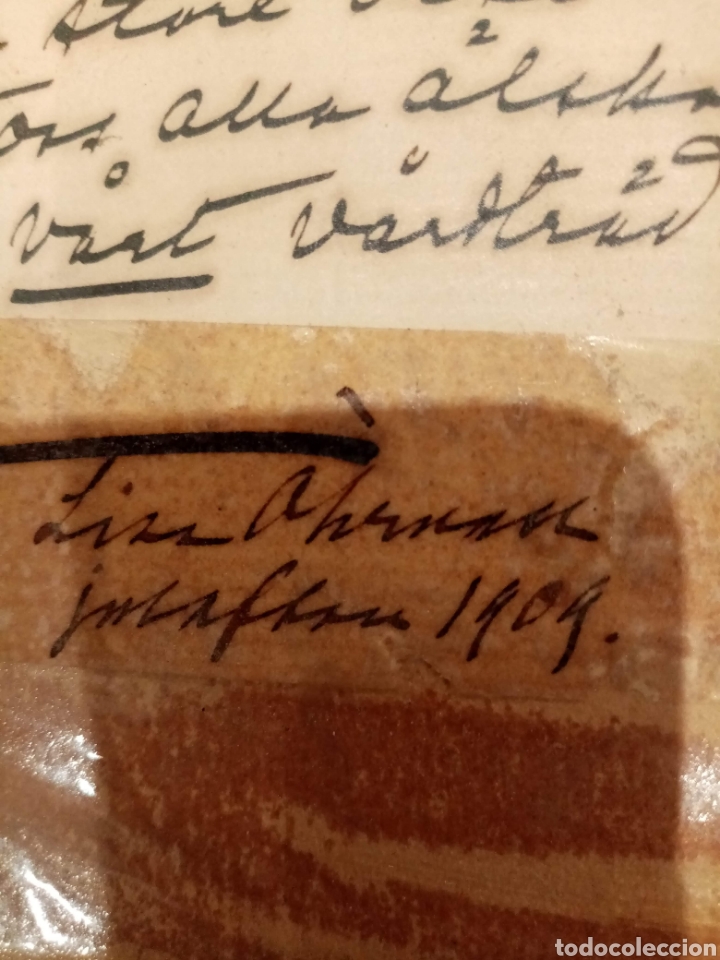 store
oss alla älska
vårt vårdträd
Lisa Öhrman
julafton 1909.
todocoleccion